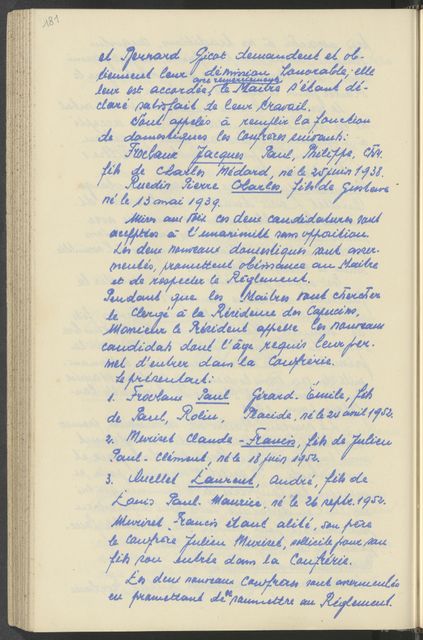 181
et Bernard Gicot demandent et ob-
tiennent leur démission honorable; elle
leur est accordée, avec remerciements, le Maître s'étant dé-
claré satisfait de leur travail.
Sont appelés à remplir la fonction
de domestiques les Confrères suivants:
Frochaux Jacques Paul, Philippe,
fils de Charles Médard, né le 25 juin 1938.
Ruedin Pierre Charles, fils de Gustave
né le 13 mai 1939.
Mises aux voix ces deux candidatures sont
acceptées à l'unanimité sans opposition.
Les deux nouveaux domestiques sont asser-
mentés, promettent obéissance au Maître
et de respecter le Règlement.
Pendant que les Maîtres vont chercher
le Clergé à la Résidence des Capucins,
Monsieur le Président appelle les nouveaux
candidats dont l'âge requis leur per-
met d'entrer dans la Confrérie.
Se présentent:
1. Frochaux Paul Girard-Émile, fils
de Paul, Rolin, Placide, né le 20 avril 1952.
2. Muriset Claude-Francis, fils de Julien
Paul-Clément, né le 18 juin 1952.
3. Quellet Laurent, André, fils de
Louis Paul-Maurice, né le 26 septbre. 1952.
Muriset Francis étant alité, son père
le confrère Julien Muriset, sollicite pour son
fils son entrée dans la Confrérie.
Les deux nouveaux Confrères sont assermentés
en promettant de se soumettre au Règlement.